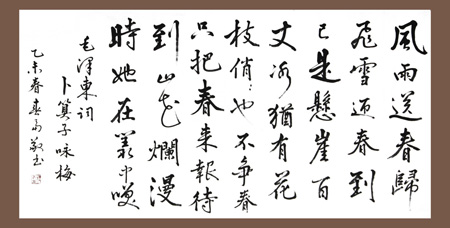 風雨送春歸
飛雪迎春到
已是懸崖百
丈冰猶有花
枝俏〻也不争春
只把春来報待
到山花爛漫
時她在叢中笑
毛澤東詞
卜算子咏梅
乙未春